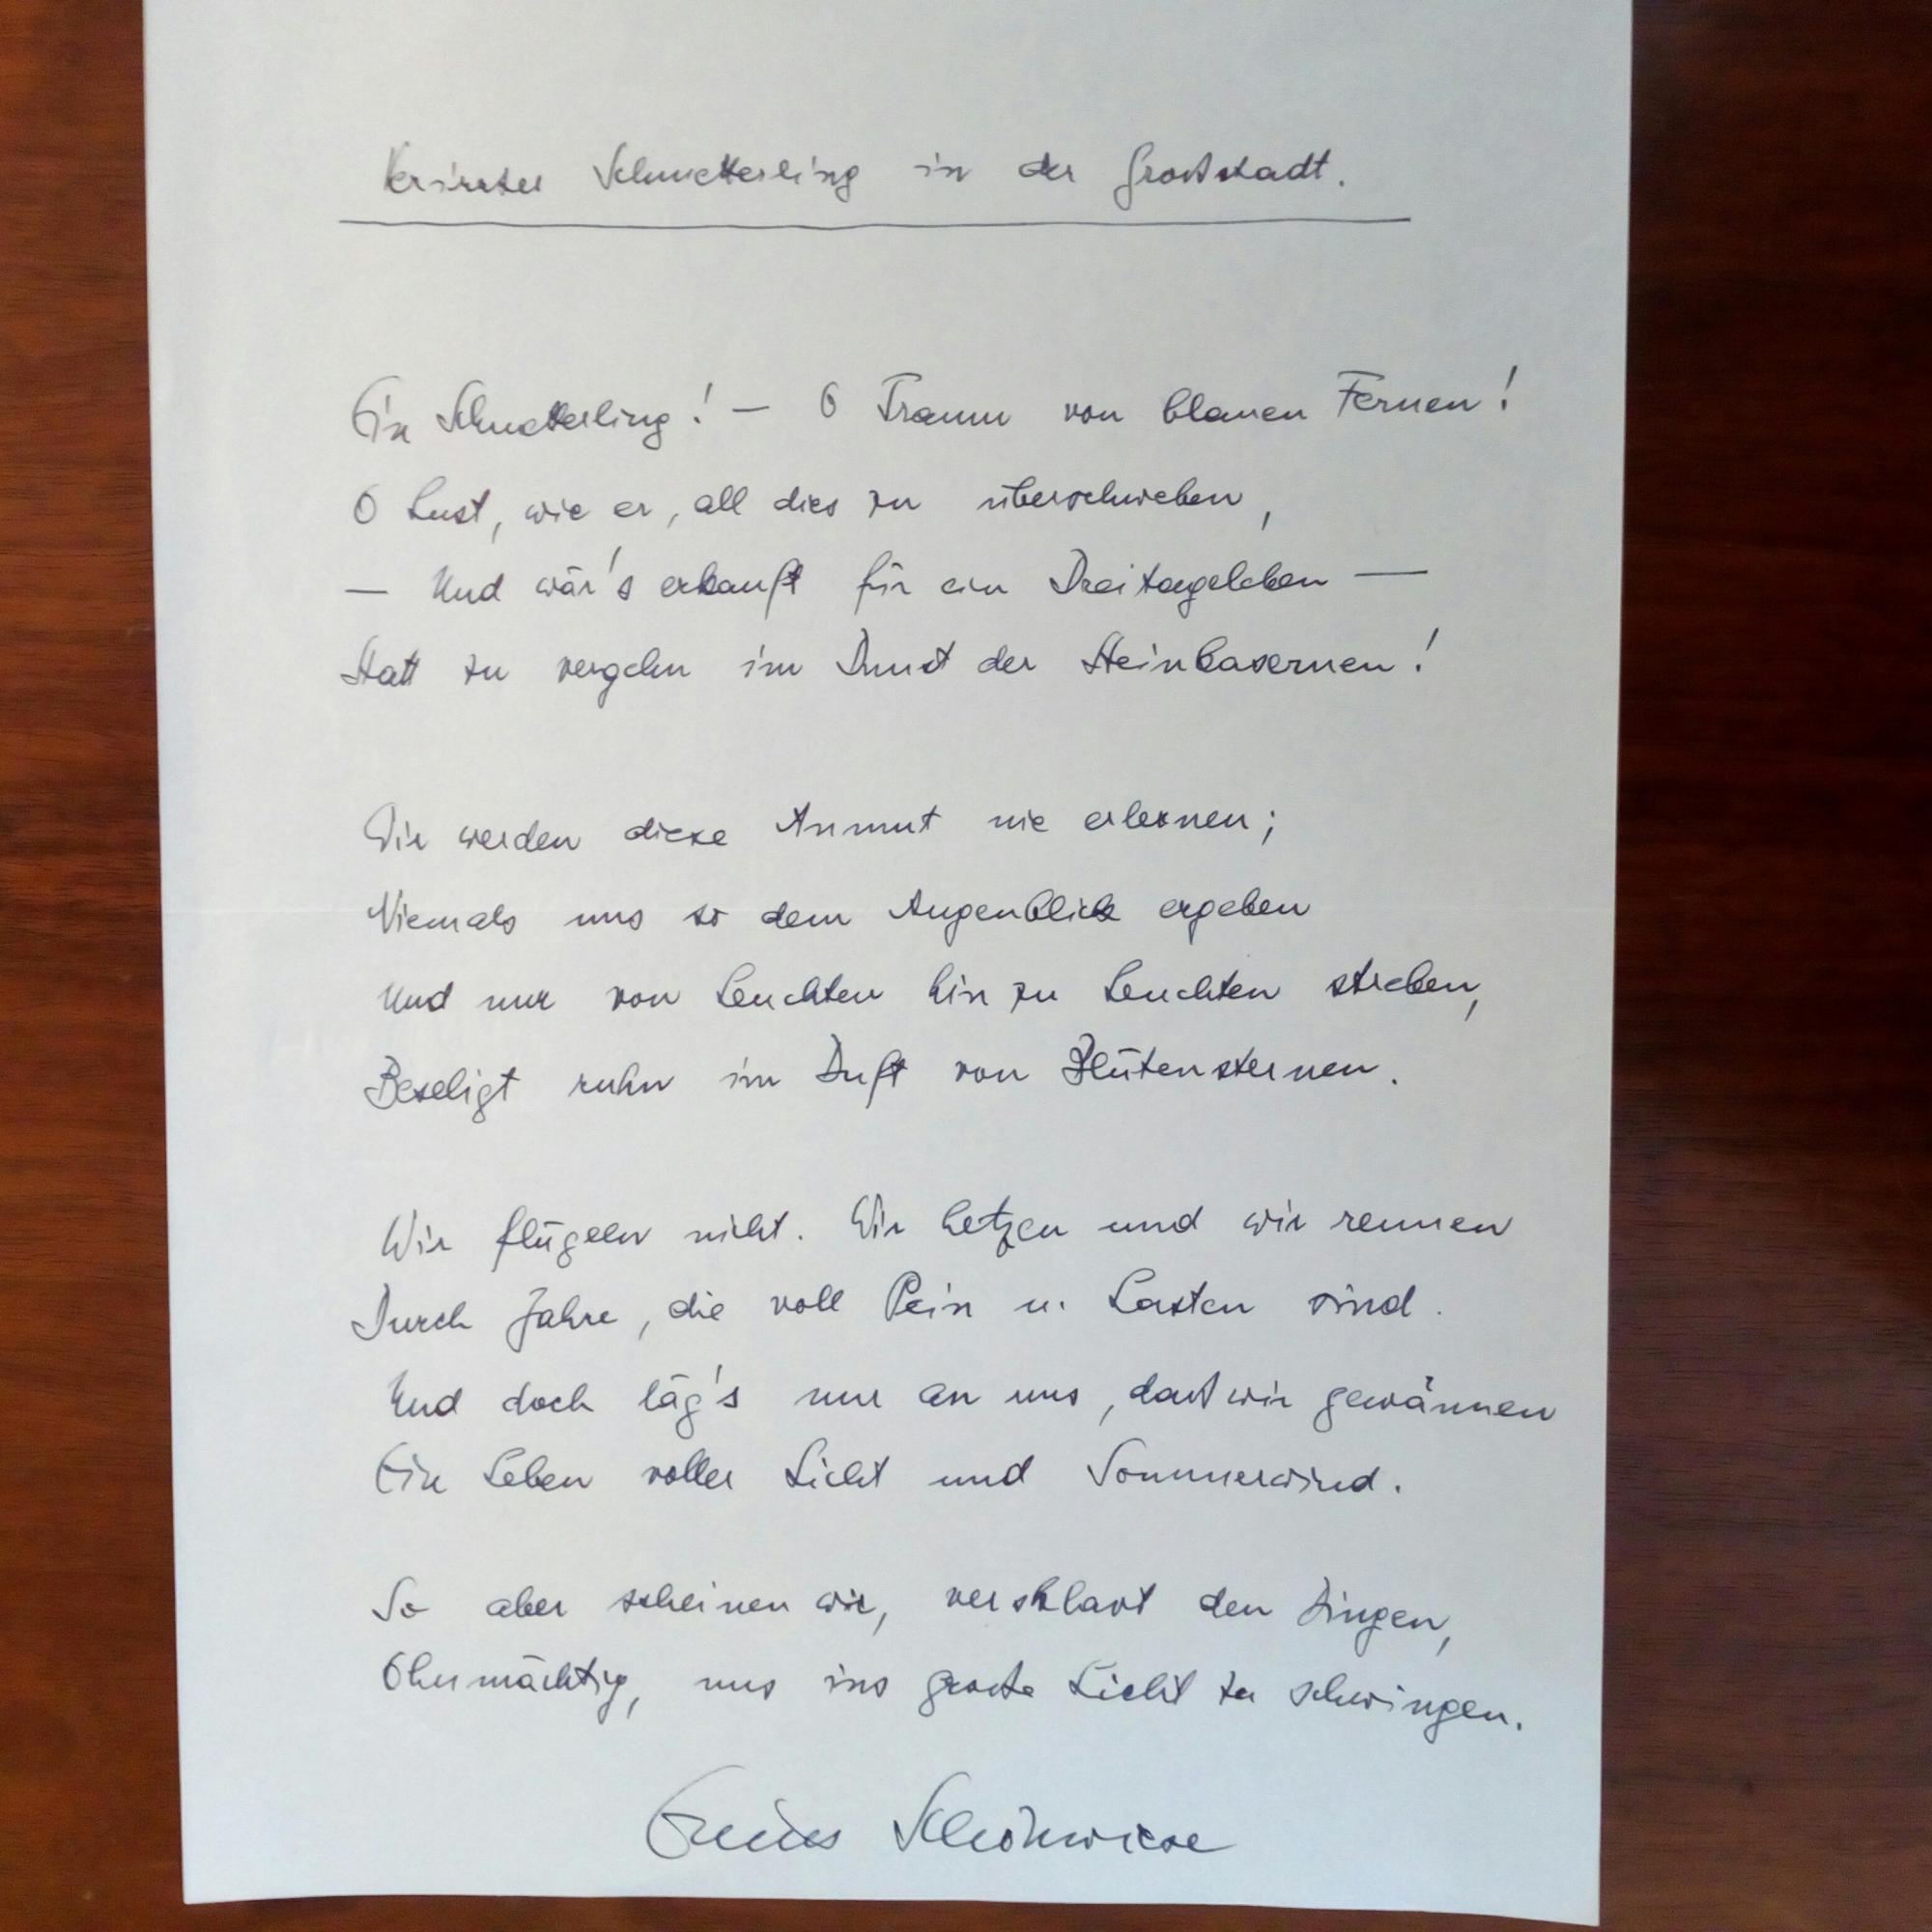 Verirrter Schmetterling in der Großstadt.
Ein Schmetterling! — O Traum von blauen Fernen!
O Lust, wie er, all dies zu überschweben,
— Und wär's erkauft für ein Dreitageleben —
Statt zu vergehn im Dunst der Steinkasernen!
Wir werden diese Anmut nie erlernen;
Niemals uns so dem Augenblick ergeben
Und nur von Leuchten hin zu Leuchten streben,
Beseligt ruhn im Duft von Blütensternen.
Wir flügeln nicht. Wir hetzen und wir rennen
Durch Jahre, die voll Pein u. Lasten sind.
Und doch läg's nur an uns, daß wir gewännen
Ein Leben voller Licht und Sommerwind.
So aber scheinen wir, versklavt den Dingen,
Ohnmächtig, uns ins große Licht zu schwingen.
Ernst Schönwiese